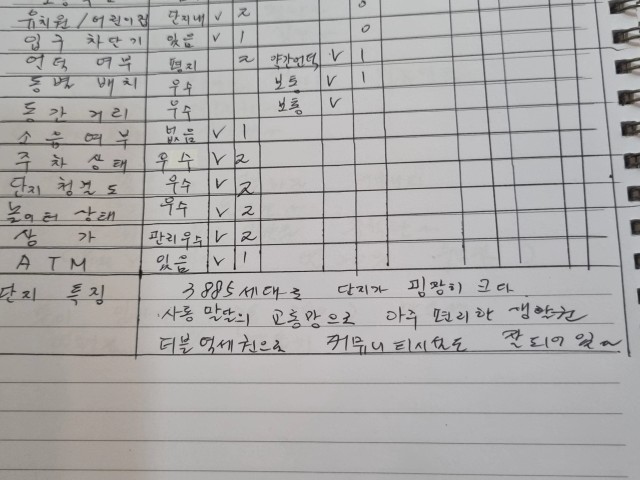 0
유치원/어린이집 단지내 v 2
입구 차단기 있음 v 1 0
언덕 여부 평지 2 약간언덕 v 1
동별 배치 우수 보통 v 1
동간 거리 우수 보통 v
소음여부 없음 v 1
주차상태 우수 v 2
단지 청결도 우수 v 2
놀이터 상태 우수 v 2
상가 관리우수 v 2
ATM 있음 v 1
단지 특징 3885세대로 단지가 굉장히 크다
사통 발달의 교통망으로 아주 편리한 생활권
더블역세권으로 커뮤니티시설도 잘 되어 있